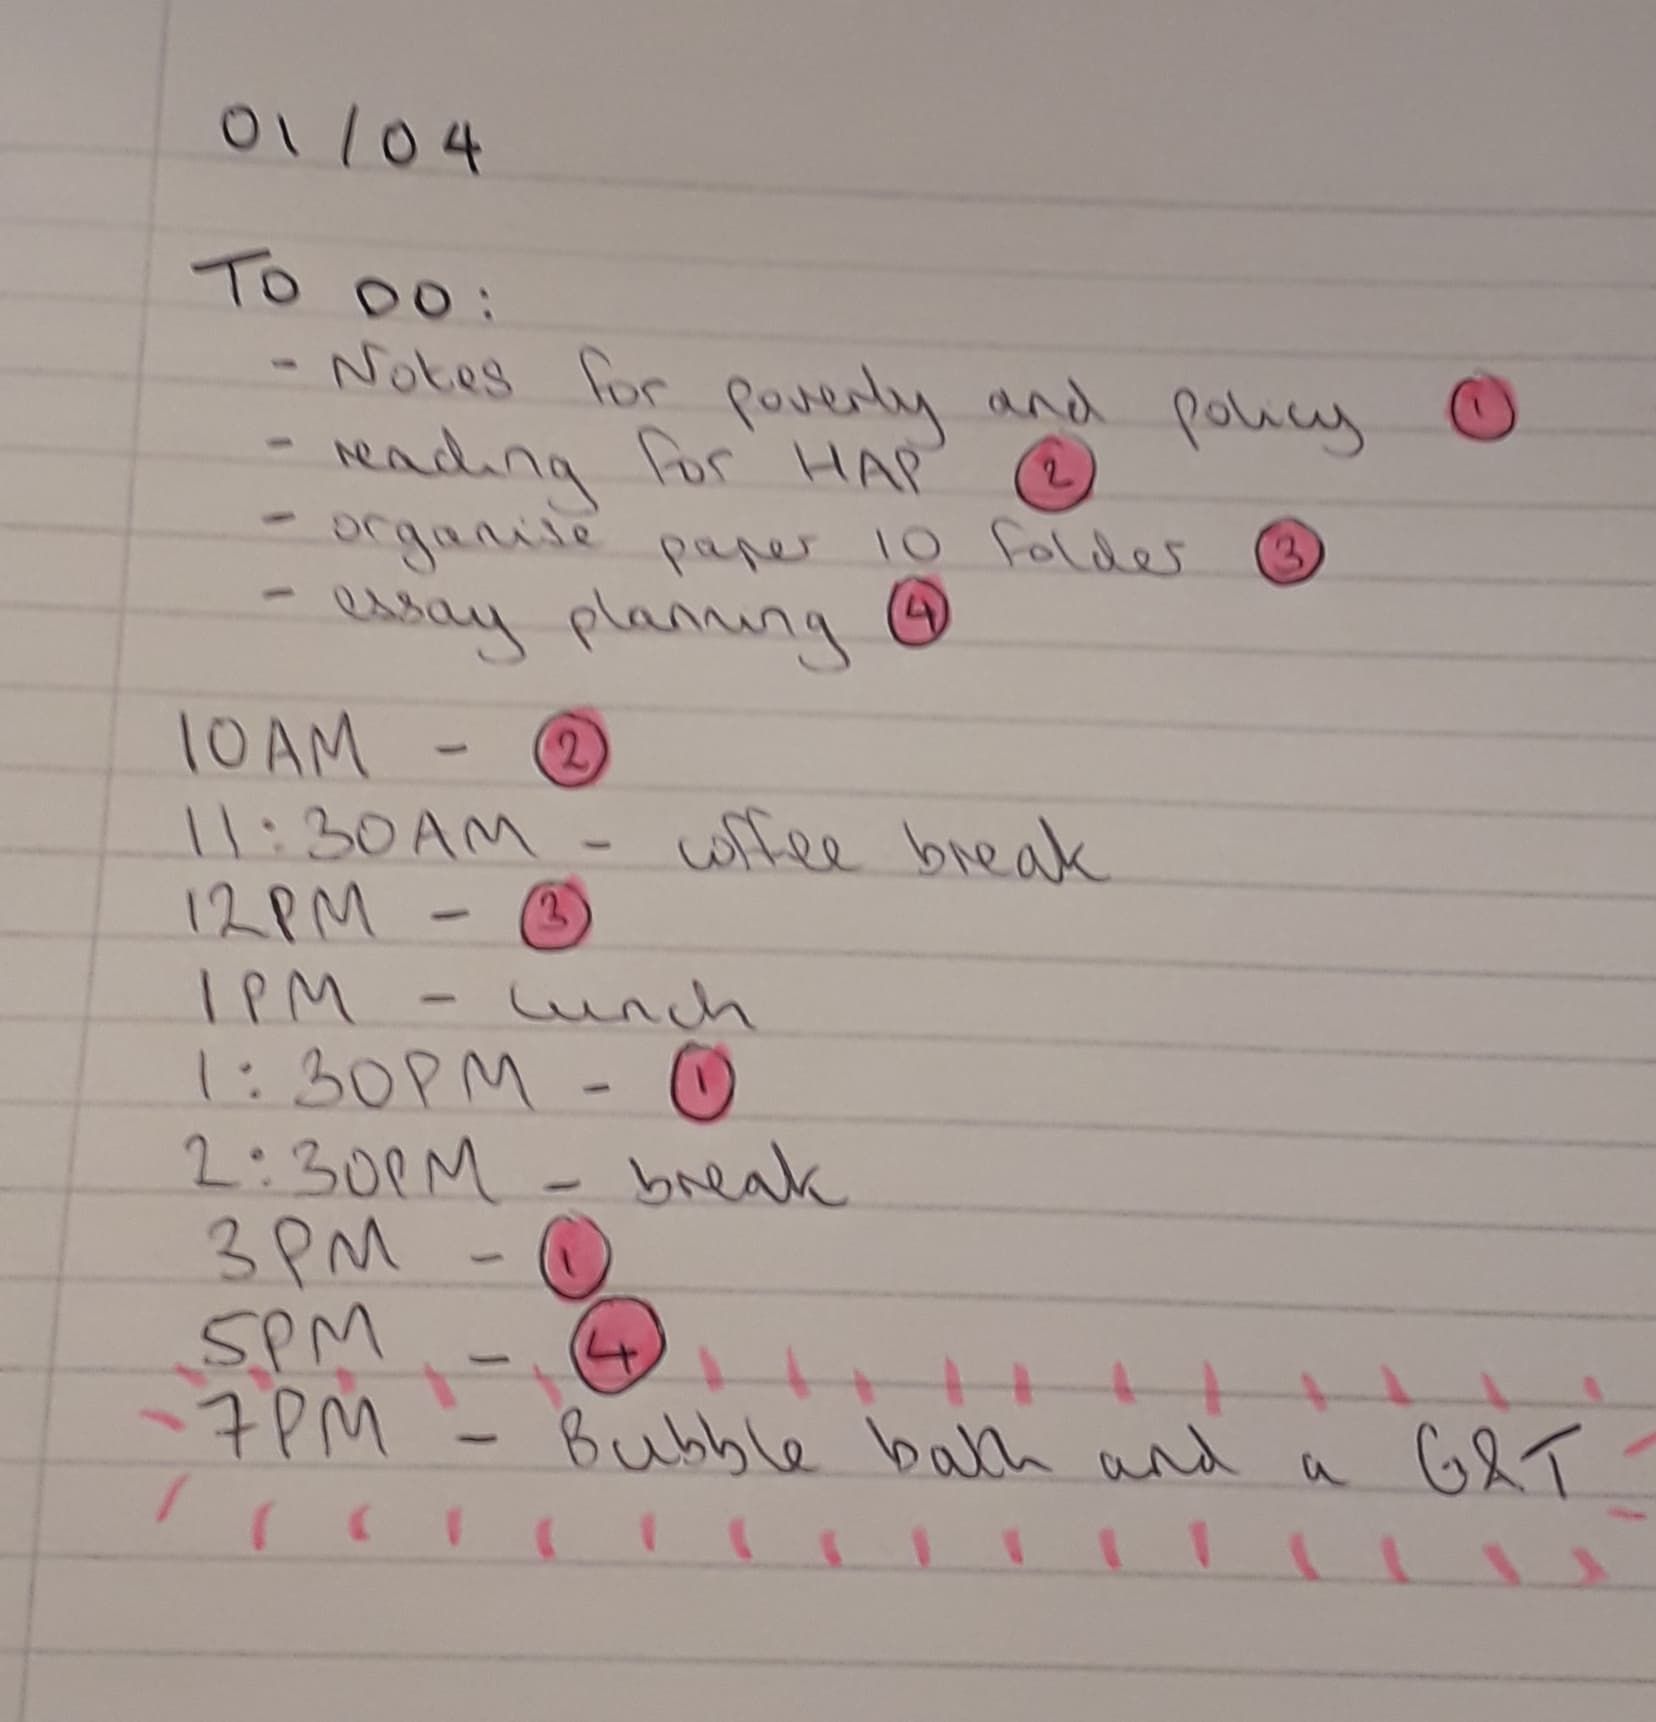 01/04
TO DO:
- Notes for poverty and policy ①
- reading for HAP ②
- organise paper 10 folder ③
- essay planning ④
10AM - ②
11:30AM - coffee break
12PM - ③
1PM - Lunch
1:30PM - ①
2:30PM - break
3PM - ①
5PM - ④
7PM - Bubble bath and a G&T